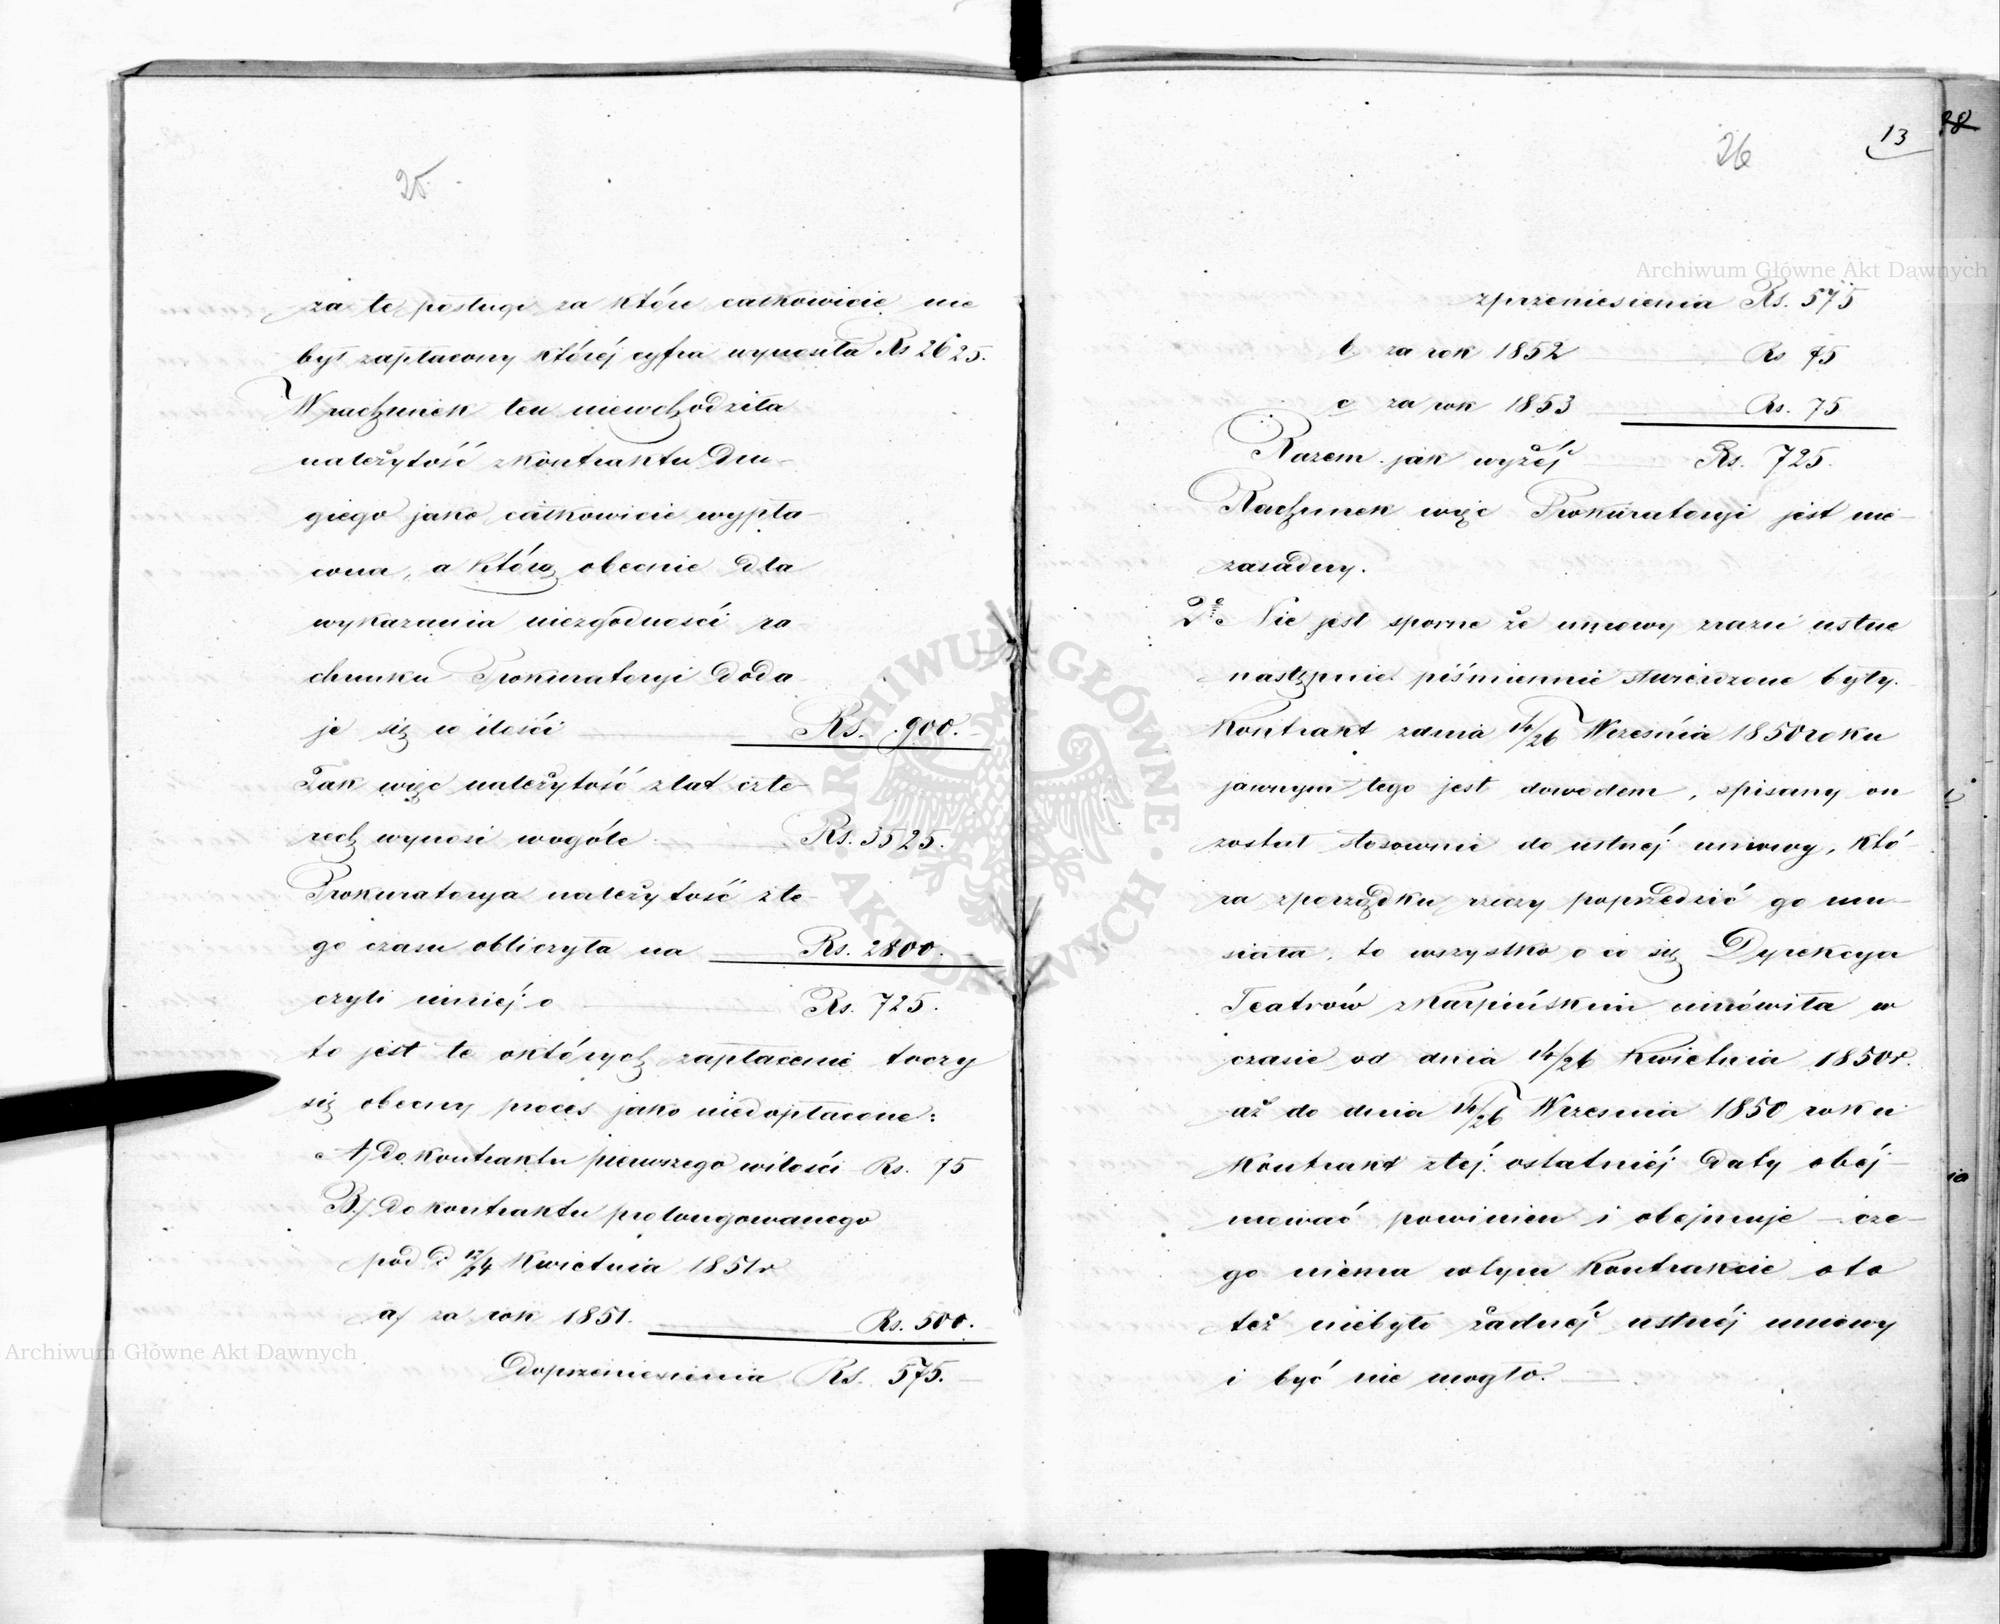 25.
za te posługi za które całkowicie nie
był zapłacony której cyfra wynosiła Rs 2625.
W rachunek ten niewchodziła
należytość z kontraktu dru-
giego jako całkowicie wypła-
cona, a którą obecnie dla
wykazania niezgodności ra-
chunku Prokuratoryi doda-
je się w ilości Rs. 900.
Tak więc należytość z lat czte-
rech wynosi wogóle Rs. 3525.
Prokuratorya należytość z te-
go czasu obliczyła na Rs. 2800.
czyli mniéj o Rs. 725.
to jest te o których zapłacenie toczy
się obecny proces jako niedopłacone:
A/ do kontraktu pierwszego wilości Rs. 75
B./ do kontraktu prolongowanego
pod d. 12/24 Kwietnia 1851 r
a/ za rok 1851. Rs. 500.
Doprzeniesienia Rs. 575.
26
13
28
zprzeniesienia Rs. 575
b. za rok 1852 Rs 75
c za rok 1853 Rs. 75
Razem jak wyżéj Rs. 725.
Rachunek więc Prokuratoryi jest nie-
zasadny.
2e Nie jest sporne że umowy zrazu ustne
następnie piśmiennie stwierdzone były.
Kontrakt zdnia 14/26 Września 1850 roku
jawnym tego jest dowodem, spisany on
został stosownie do ustnéj umowy, któ-
ra zporządku rzeczy poprzedzić go mu-
siała, to wszystko o co się Dyrekcya
Teatrów z Karpińskim umówiła w
czasie od dnia 14/26 Kwietnia 1850 r.
aż do dnia 14/26 Wrzesnia 1850 roku
Kontrakt z téj ostatniéj daty obéj-
mować powinien i obejmuje – cze-
go niema w tym Kontrakcie o to
też niebyło żadnéj ustnéj umowy
i być nie mogło.
Archiwum Główne Akt Dawnych
Archiwum Główne Akt Dawnych
ARCHIWUM GŁÓWNE · AKT DAWNYCH ·